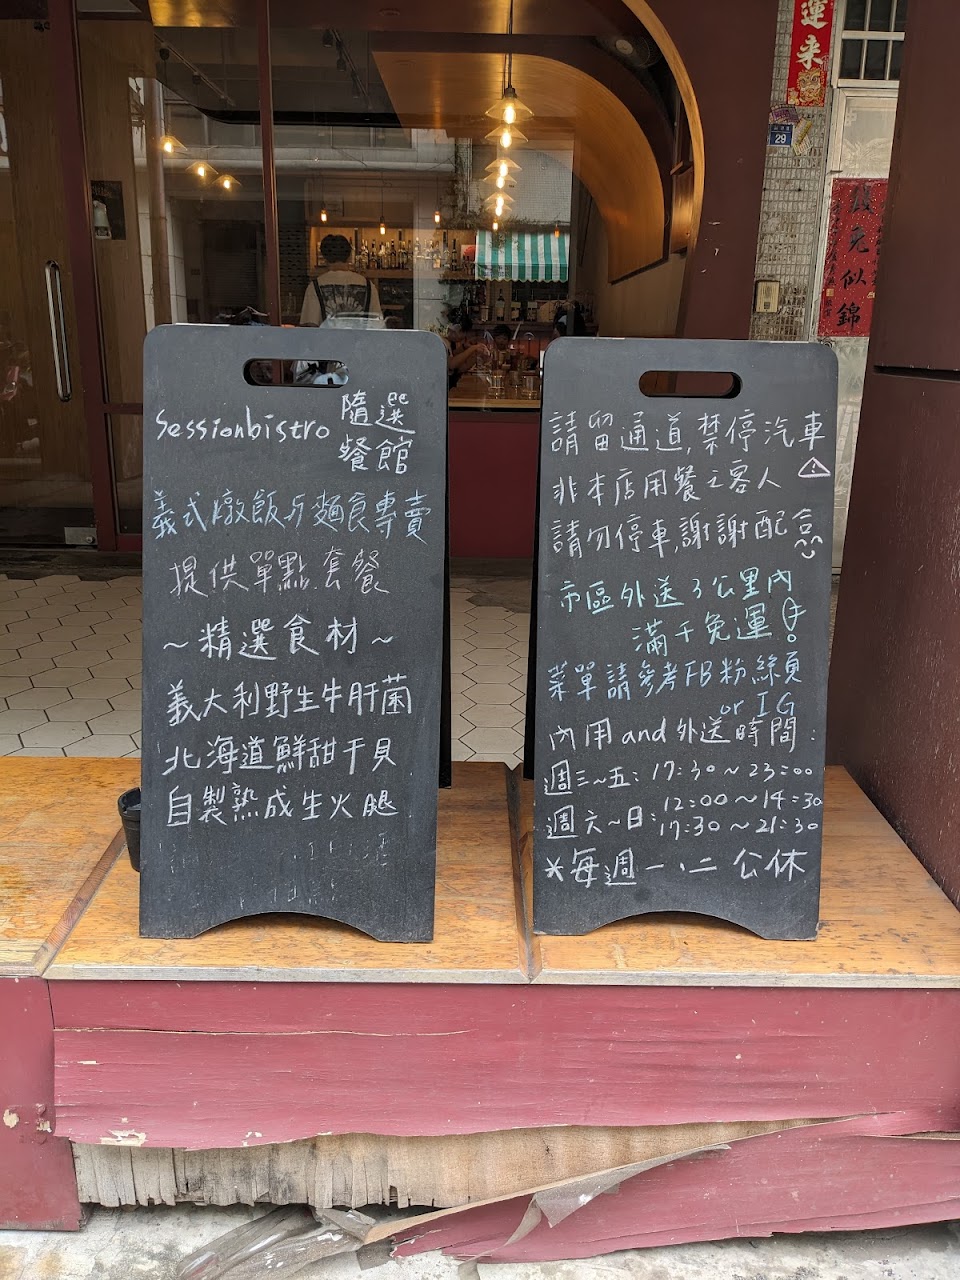 Sessionbistro 隨選
餐館
義式燉飯与麵食專賣
提供單點套餐
~精選食材~
義大利野生牛肝菌
北海道鮮甜干貝
自製熟成生火腿
請留通道,禁停汽車
非本店用餐之客人
請勿停車,謝謝配合
市區外送3公里內
滿千免運!
菜單請參考FB粉絲頁
or IG
內用and外送時間:
週三~五:17:30~23:00
週六~日:12:00~14:30
17:30~21:30
*每週一、二公休
運來
29
花似錦